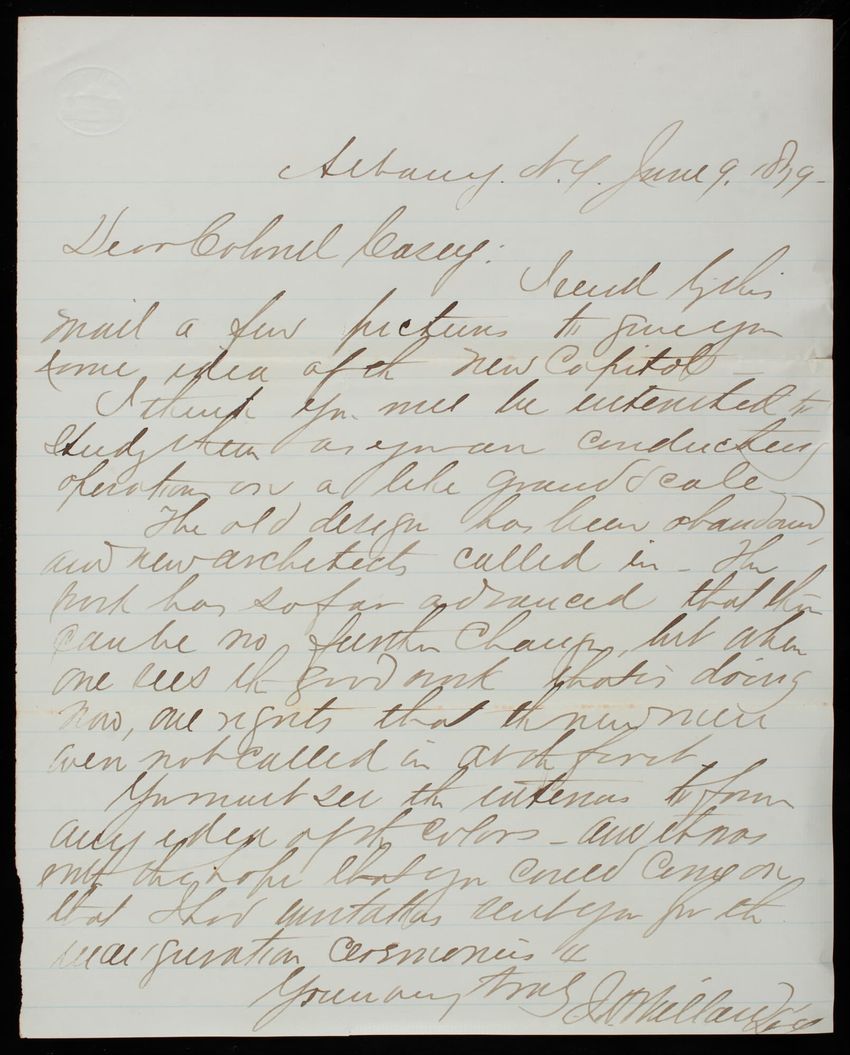 Albany. N.Y. June 9. 1879-
Dear Colonel Casey:
I send by this
mail a few pictures to give you
some idea of th new Capitol -
I think you will be interested to
study them as you are conducting
operations on a like grand scale -
The old design has been abandoned,
and new architects called in - The
work has so far advanced that ther
can be no further change, but when
one sees th good work that is doing
now, one regrets that th new men
were not called in at th first.
You must see th interior to form
any idea of th colors - and it was
with the hope that you could come on
that I had invitations sent you for th
inauguration ceremonies
Yours very truly